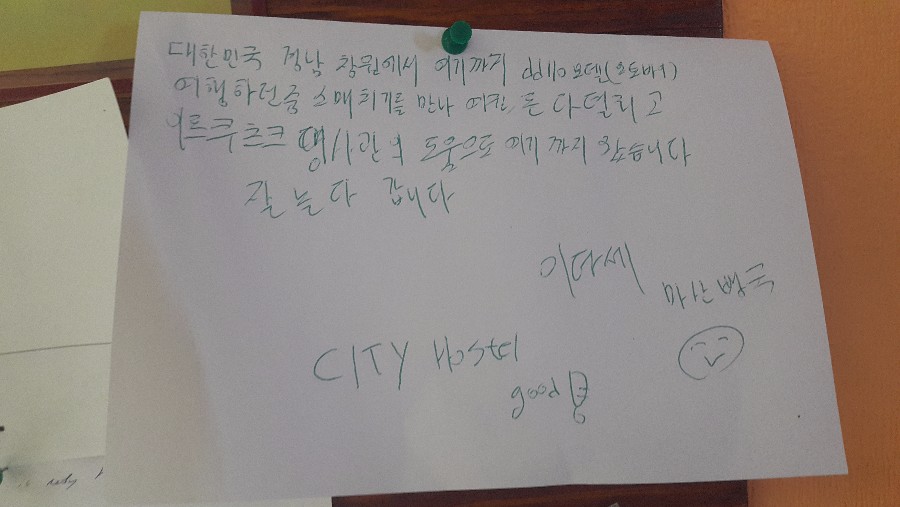 대한민국 경남 창원에서 여기까지 dd110모델(오토바이)
여행하던중 소매치기를 만나 여권, 돈 다털리고
이르쿠츠크 영사관의 도움으로 여기까지 왔습니다
잘 놀다 갑니다
이다세
마산뺑국
CITY Hostel
good